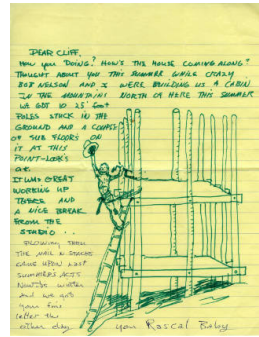 DEAR CLIFF,
HOW YOU DOING? HOW'S THE HOUSE COMING ALONG?
THOUGHT ABOUT YOU THIS SUMMER WHILE CRAZY
BOB NELSON AND I WERE BUILDING US A CABIN
IN THE MOUNTAINS NORTH OF HERE THIS SUMMER
WE GOT 10 25 foot
POLES STUCK IN THE
GROUND AND A COUPLE
OF SUB FLOORS ON
IT AT THIS
POINT - LOOKS
OK
IT WAS GREAT
WORKING UP
THERE AND
A NICE BREAK
FROM THE
STUDIO...
PLOWING THRU
THE MAIL N STACKS
CAME UPON LAST
SUMMERS
And we got
your fine
letter the
other day
your Rascal Baby